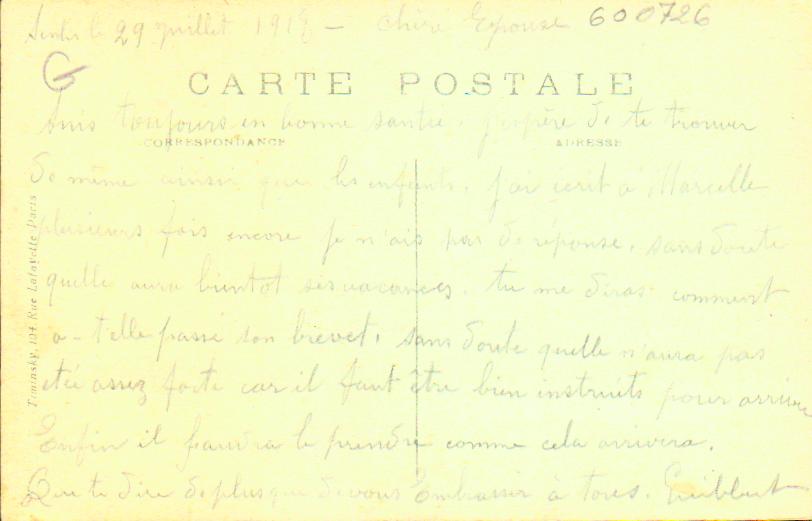 Senlis le 29 juillet 191 – chère Epouse 600726
G
CARTE POSTALE
Suis toujours en bonne santée. j'espère de te trouver
CORRESPONDANCE ADRESSE
de même ainsi que les enfants. j'ai écrit à Marcelle
plusieurs fois encore je n'ais pas de réponse. sans doute
quelle aura bientot ses vacances. tu me diras comment
a-t'elle passé son brevet. sans doute quelle n'aura pas
etée assez forte car il faut être bien instruits pour arriver
Enfin il faudra le prendre comme cela arrivera.
Que te dire de plus que de vous Embrasser à tous.
Timinsky, 104, Rue Lafayette Paris